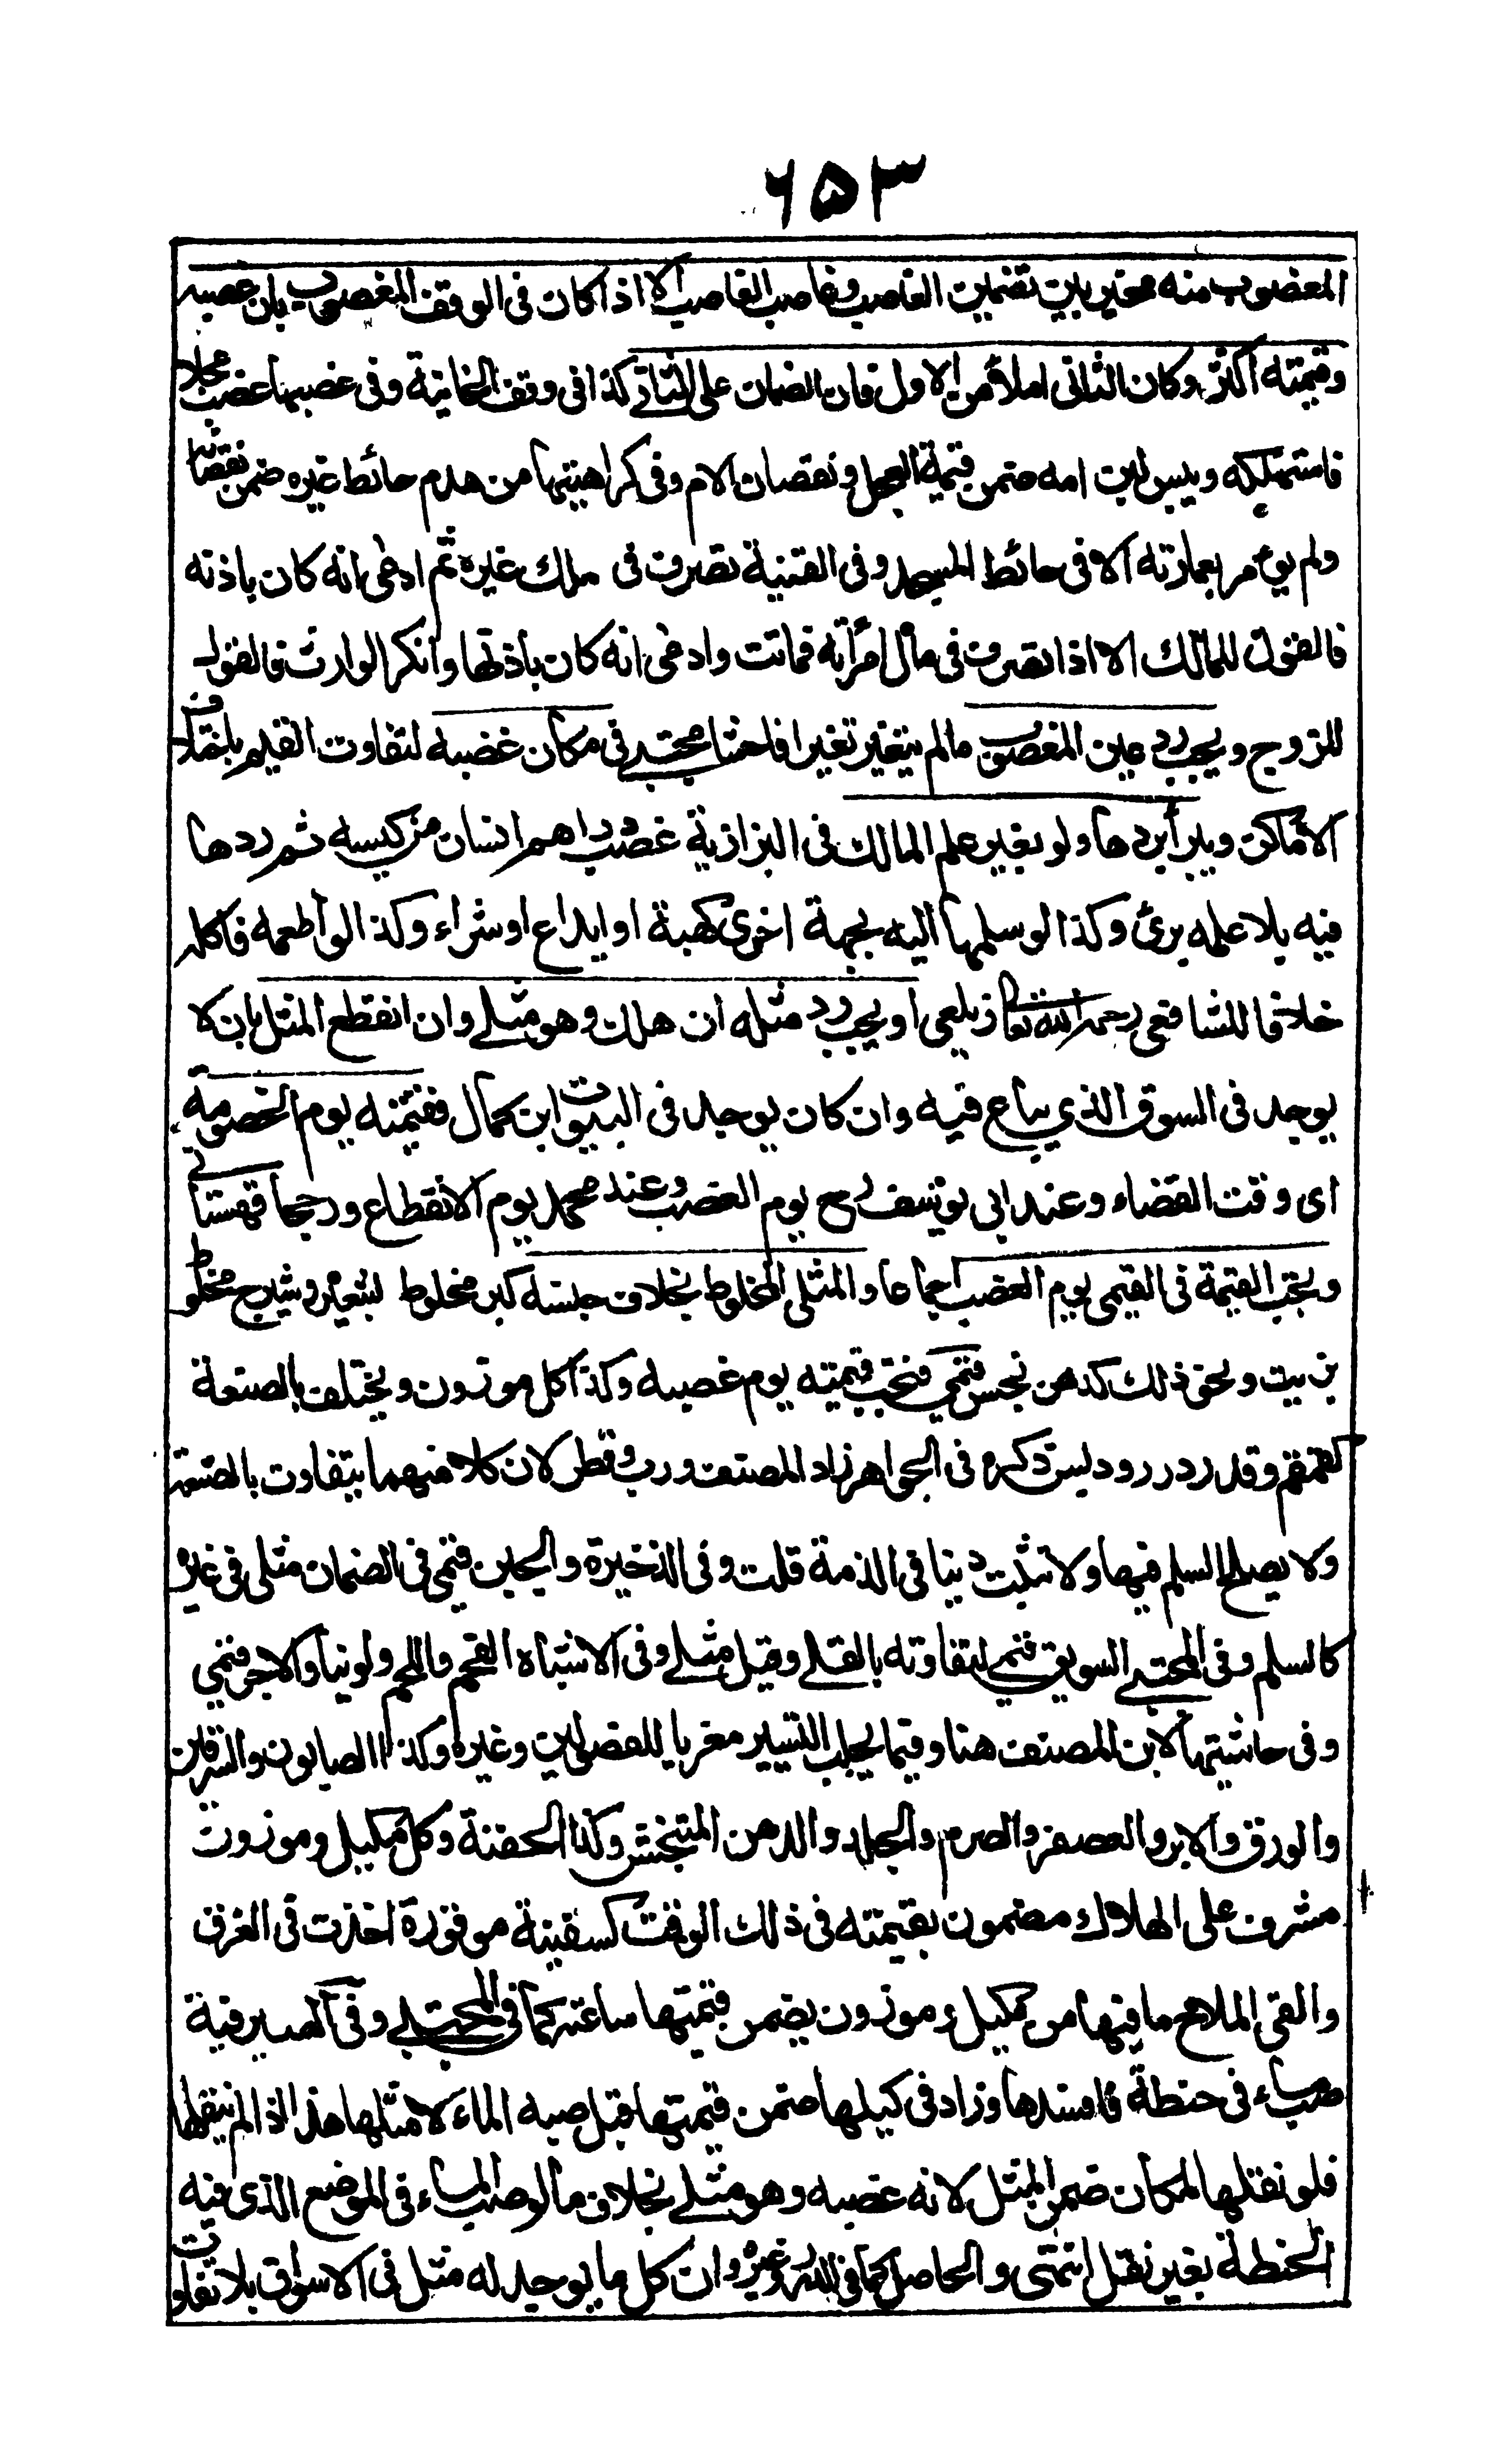 ٦٥٣
المغصوب منه مخير بين تضمين الغاصب وغاصب الغاصب الا اذا كان فى الوقف المغصوب بان غصبه
وقيمته اكثر وكان الثانى املأ من الاول فان الضمان على الثانى كذا فى وقف الخانية وفى غصبها غصب عجلا
فاستهلكه ويبس لبن امه ضمن قيمة العجل ونقصان الام وفى كراهيتها من هدم حائط غيره ضمن نقصانه
ولم يؤمر بعمارته الا فى حائط المسجد وفى القنية تصرف فى ملك غيره ثم ادعى انه كان باذنه
فالقول للمالك الا اذا تصرف فى مال امرأته فماتت وادعى انه كان باذنها وانكر الوارث فالقول
للزوج ويجب رد عين المغصوب مالم يتغير تغيرا فاحشا مجتبى فى مكان غصبه لتفاوت القيم باختلاف
الاماكن ويبرأ بردها ولو بغير علم المالك فى البزازية غصب دراهم انسان من كيسه ثم ردها
فيه بلا علمه برئ وكذا لو سلمها اليه بجهة اخرى كهبة او ايداع او شراء وكذا لو اطعمه فاكله
خلافا للشافعى رحمه الله تعا زيلعى او يجب رد مثله ان هلك وهو مثلى وان انقطع المثل بان لا
يوجد فى السوق الذي يباع فيه وان كان يوجد فى البيوت ابن كمال فقيمته يوم الخصومة
اى وقت القضاء وعند ابى يوسف رح يوم الغصب وعند محمد يوم الانقطاع ورجحا قهستانى
وتجب القيمة فى القيمى يوم الغصب اجماعا والمثلى المخلوط بخلاف جنسه كبر مخلوط بشعير وشيرج مخلوط
بزيت ونحو ذلك كدهن نجس قيمى فتجب قيمته يوم غصبه وكذا كل موزون ويختلف بالصنعة
كقمقم وقدر درر ودبس ذكره فى الجواهر زاد المصنف ورب وقطر لان كلا منهما يتفاوت بالصنعة
ولا يصح السلم فيها ولا تثبت دينا فى الذمة قلت وفى الذخيرة والجبن قيمى فى الضمان مثلى فى غيره
كالسلم وفى المجتبى السويق قيمى لتفاوته بالقلى وقيل مثلى وفى الاشباه الفحم واللحم ولو نيا والاجر قيمى
وفى حاشيتها لابن المصنف هنا وفيما يجلب التيسير معزيا للفصولين وغيره وكذا الصابون والسرقين
والورق والابر والعصفر والصرم والجلد والدهن المتنجش وكذا الحفنة وكل مكيل وموزون
مشرف على الهلاك مضمون بقيمته فى ذلك الوقت كسفينة موقورة اخذت فى الغرق
والقى الملاح ما فيها من مكيل وموزون يضمن قيمتها ساعته كما فى المجتبى وفى الصيرفية
صب ماء فى حنطة فافسدها وزاد فى كيلها ضمن قيمتها قبل صبه الماء لا مثلها هذا اذا لم ينقلها
فلو نقلها لمكان ضمن المثل لانه غصبه وهو مثلى بخلاف ما لو صب الماء فى الموضع الذى فيه
الحنطة بغير نقل انتهى والحاصل كما فى الدرر وغيره وان كل ما يوجد له مثل فى الاسواق بلا تفاوت